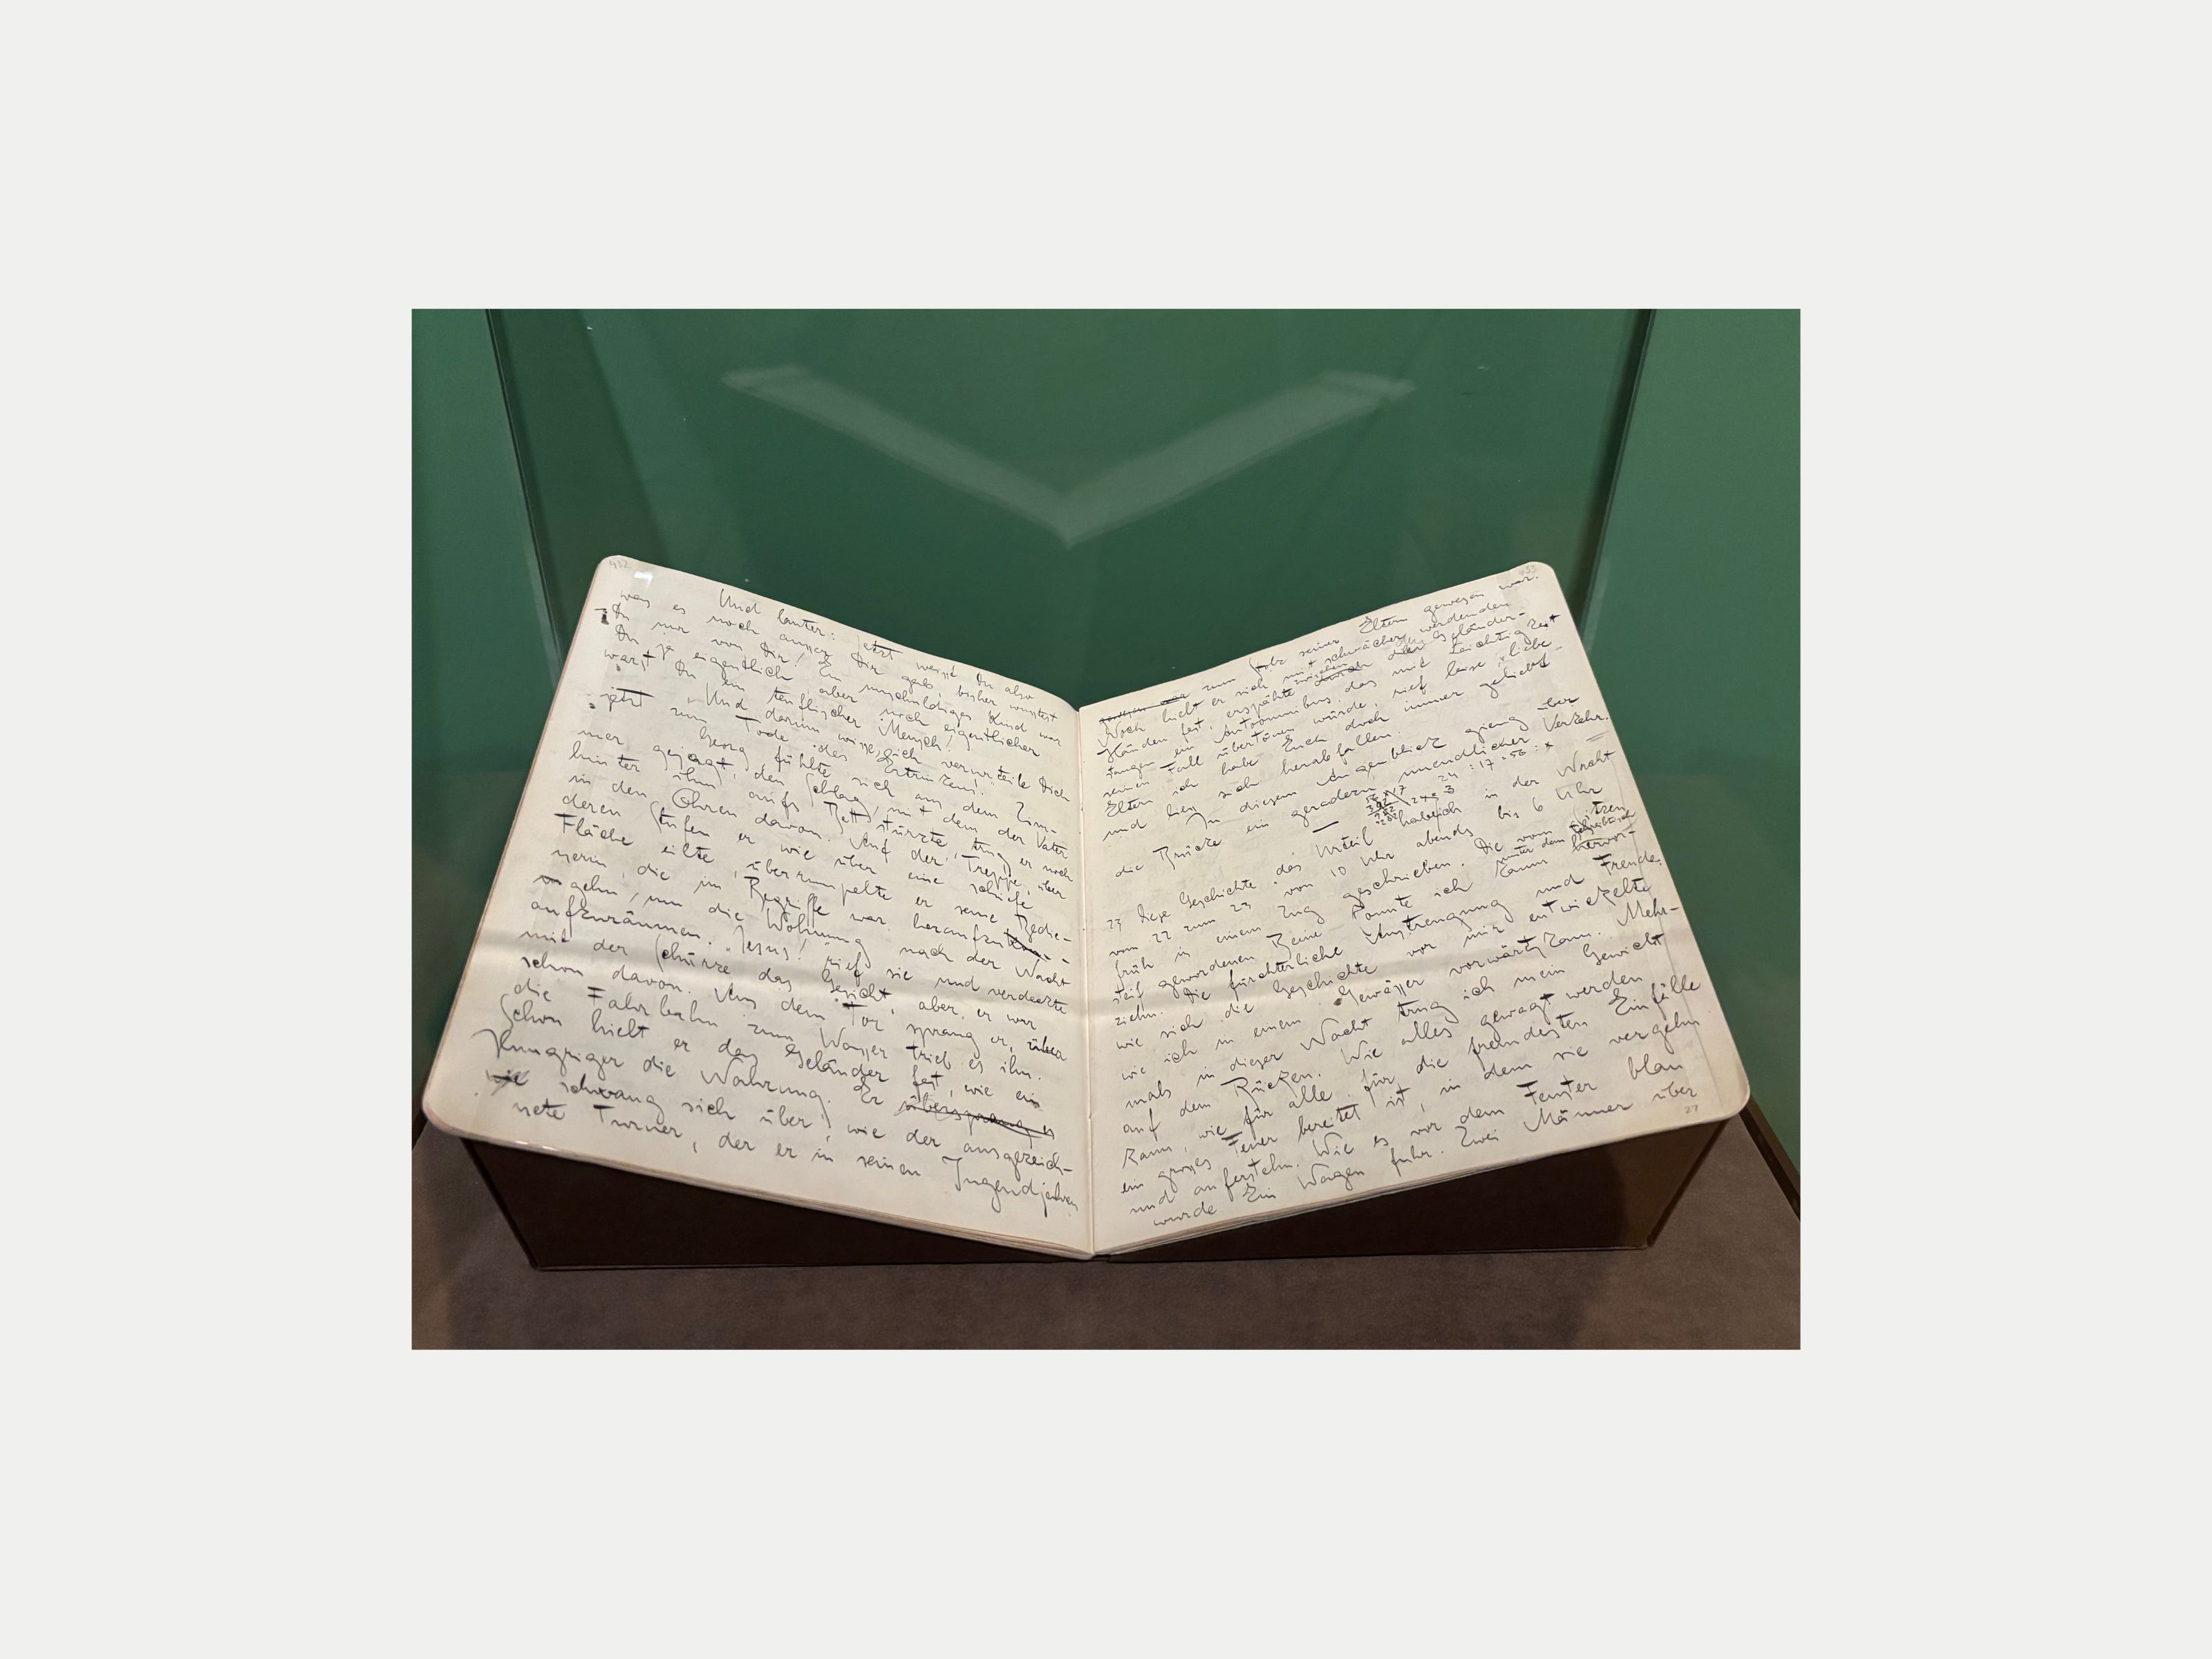 432
was es noch ausser Dir gab, bisher wusstest
Und lauter: Jetzt weisst Du also
Du nur von Dir! Ein unschuldiges Kind war
Du ja eigentlich aber noch eigentlicher
warst Du ein teuflischer Mensch!
Und darum wisse, ich verurteile Dich
jetzt zum Tode des Ertrinkens!
Georg fühlte sich aus dem Zim-
mer gejagt, den Schlag, mit dem der Vater
hinter ihm aufs Bett stürzte, trug er noch
in den Ohren davon. Auf der Treppe, über
deren Stufen er wie über eine schiefe
Fläche eilte, überrumpelte er seine Bedie-
nerin, die im Begriffe war heraufzu
gehn, um die Wohnung nach der Nacht
aufzuräumen. "Jesus!" rief sie und verdeckte
mit der Schürze das Gesicht, aber, er war
schon davon. Aus dem Tor sprang er, über
die Fahrbahn zum Wasser trieb es ihn.
Schon hielt er das Geländer fest, wie ein
Hungriger die Nahrung. Er übersprang es
wie schwang sich über, wie der ausgezeich-
nete Turner, der er in seinen Jugendjahren
433
gewesen war zum Stolz seiner Eltern gewesen war.
Noch hielt er sich mit schwächer werdenden
Händen fest, erspähte zwischen den Geländer-
stangen ein Autoomnibus, das mit Leichtigkeit
seinen Fall übertönen würde, rief leise "Liebe
Eltern ich habe Euch doch immer geliebt"
und liess sich herabfallen.
In diesem Augenblick gieng über
die Brücke ein geradezu unendlicher Verkehr.
24 : 17 = 56 : x
23 Diese Geschichte "das Urteil" habe ich in der Nacht
vom 22 zum 23 von 10 Uhr abends bis 6 Uhr
früh in einem Zug geschrieben. Die vom Sitzen
steif gewordenen Beine konnte ich kaum unter dem Schreibtisch hervor-
ziehn. Die fürchterliche Anstrengung und Freude,
wie sich die Geschichte vor mir entwickelte
wie ich in einem Gewässer vorwärtskam. Mehr-
mals in dieser Nacht trug ich mein Gewicht
auf dem Rücken. Wie alles gewagt werden
kann, wie für alle, für die fremdesten Einfälle
ein grosses Feuer bereitet ist, in dem sie vergehn
und auferstehn. Wie es vor dem Fenster blau
wurde. Ein Wagen fuhr. Zwei Männer über
27